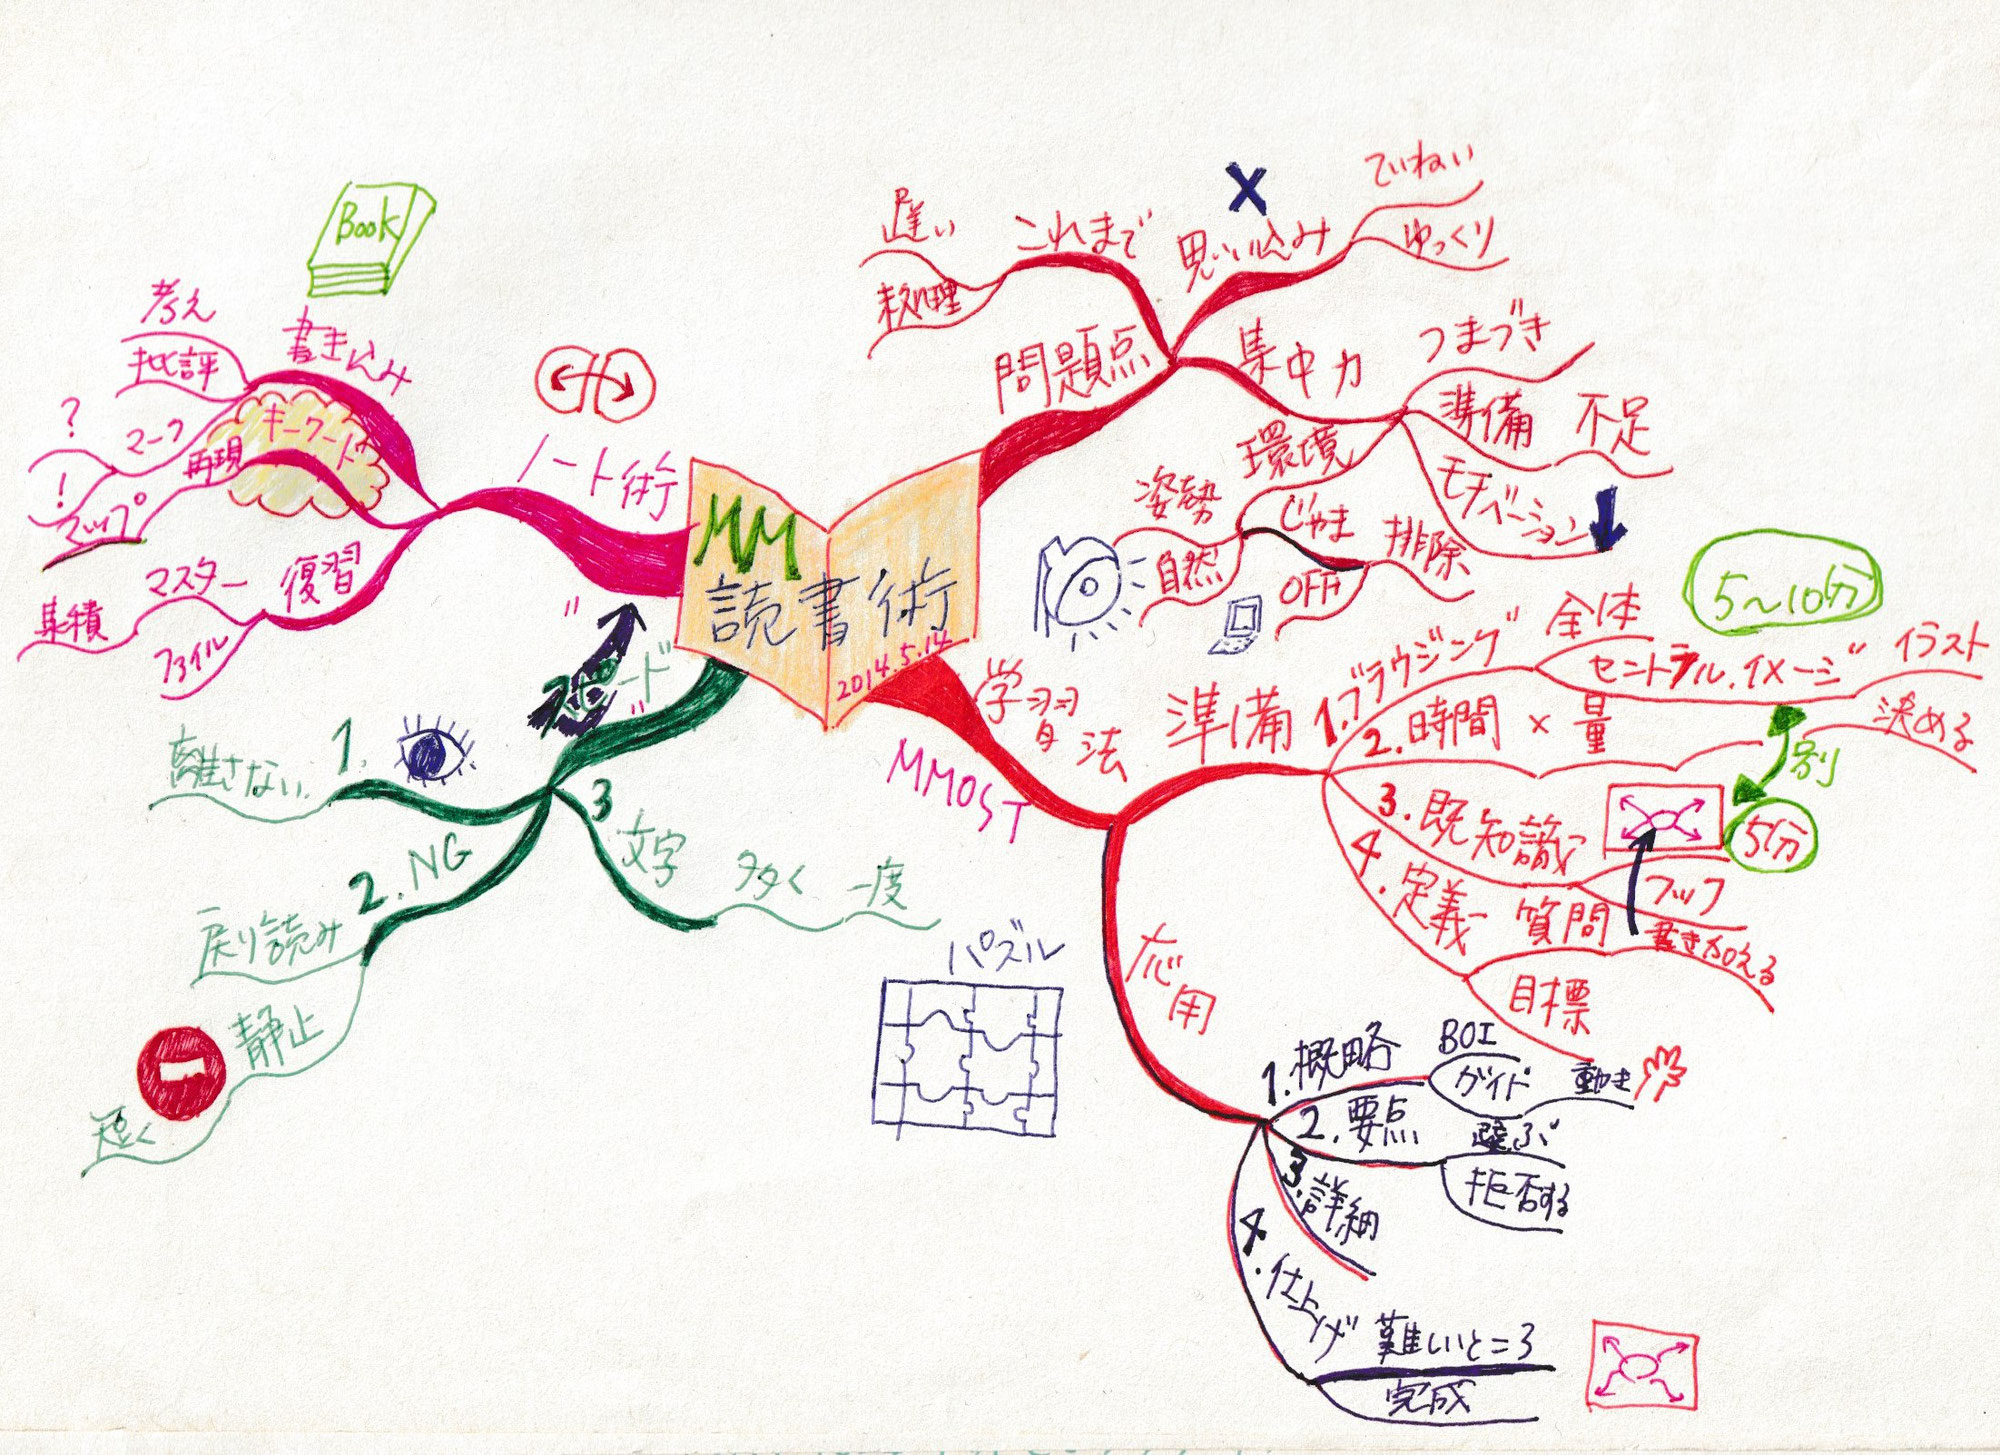 MM
読書術
2014.5.14
問題点
これまで
遅い
未処理
思い込み
X
ていねい
ゆっくり
集中力
つまづき
準備 不足
モチベーション
環境
姿勢
自然
じゃま
排除
OFF
学習法
MMOST
準備
1.ブラウジング
全体
セントラル.イメージ
イラスト
5〜10分
2.時間 × 量
決める
別
5分
3.既知識
フック
書き加える
4.定義
質問
目標
応用
1.概略
BOI
ガイド
動き
2.要点
選ぶ
拒否する
3.詳細
4.仕上げ
難しいところ
完成
パズル
"スピード"
1.
離さない.
2.NG
戻り読み
静止
短く
3
文字
多く 一度
ノート術
Book
書き込み
考え
批評
マーク
?
!
キーワード
再現
マップ
復習
マスター
集積
ファイル